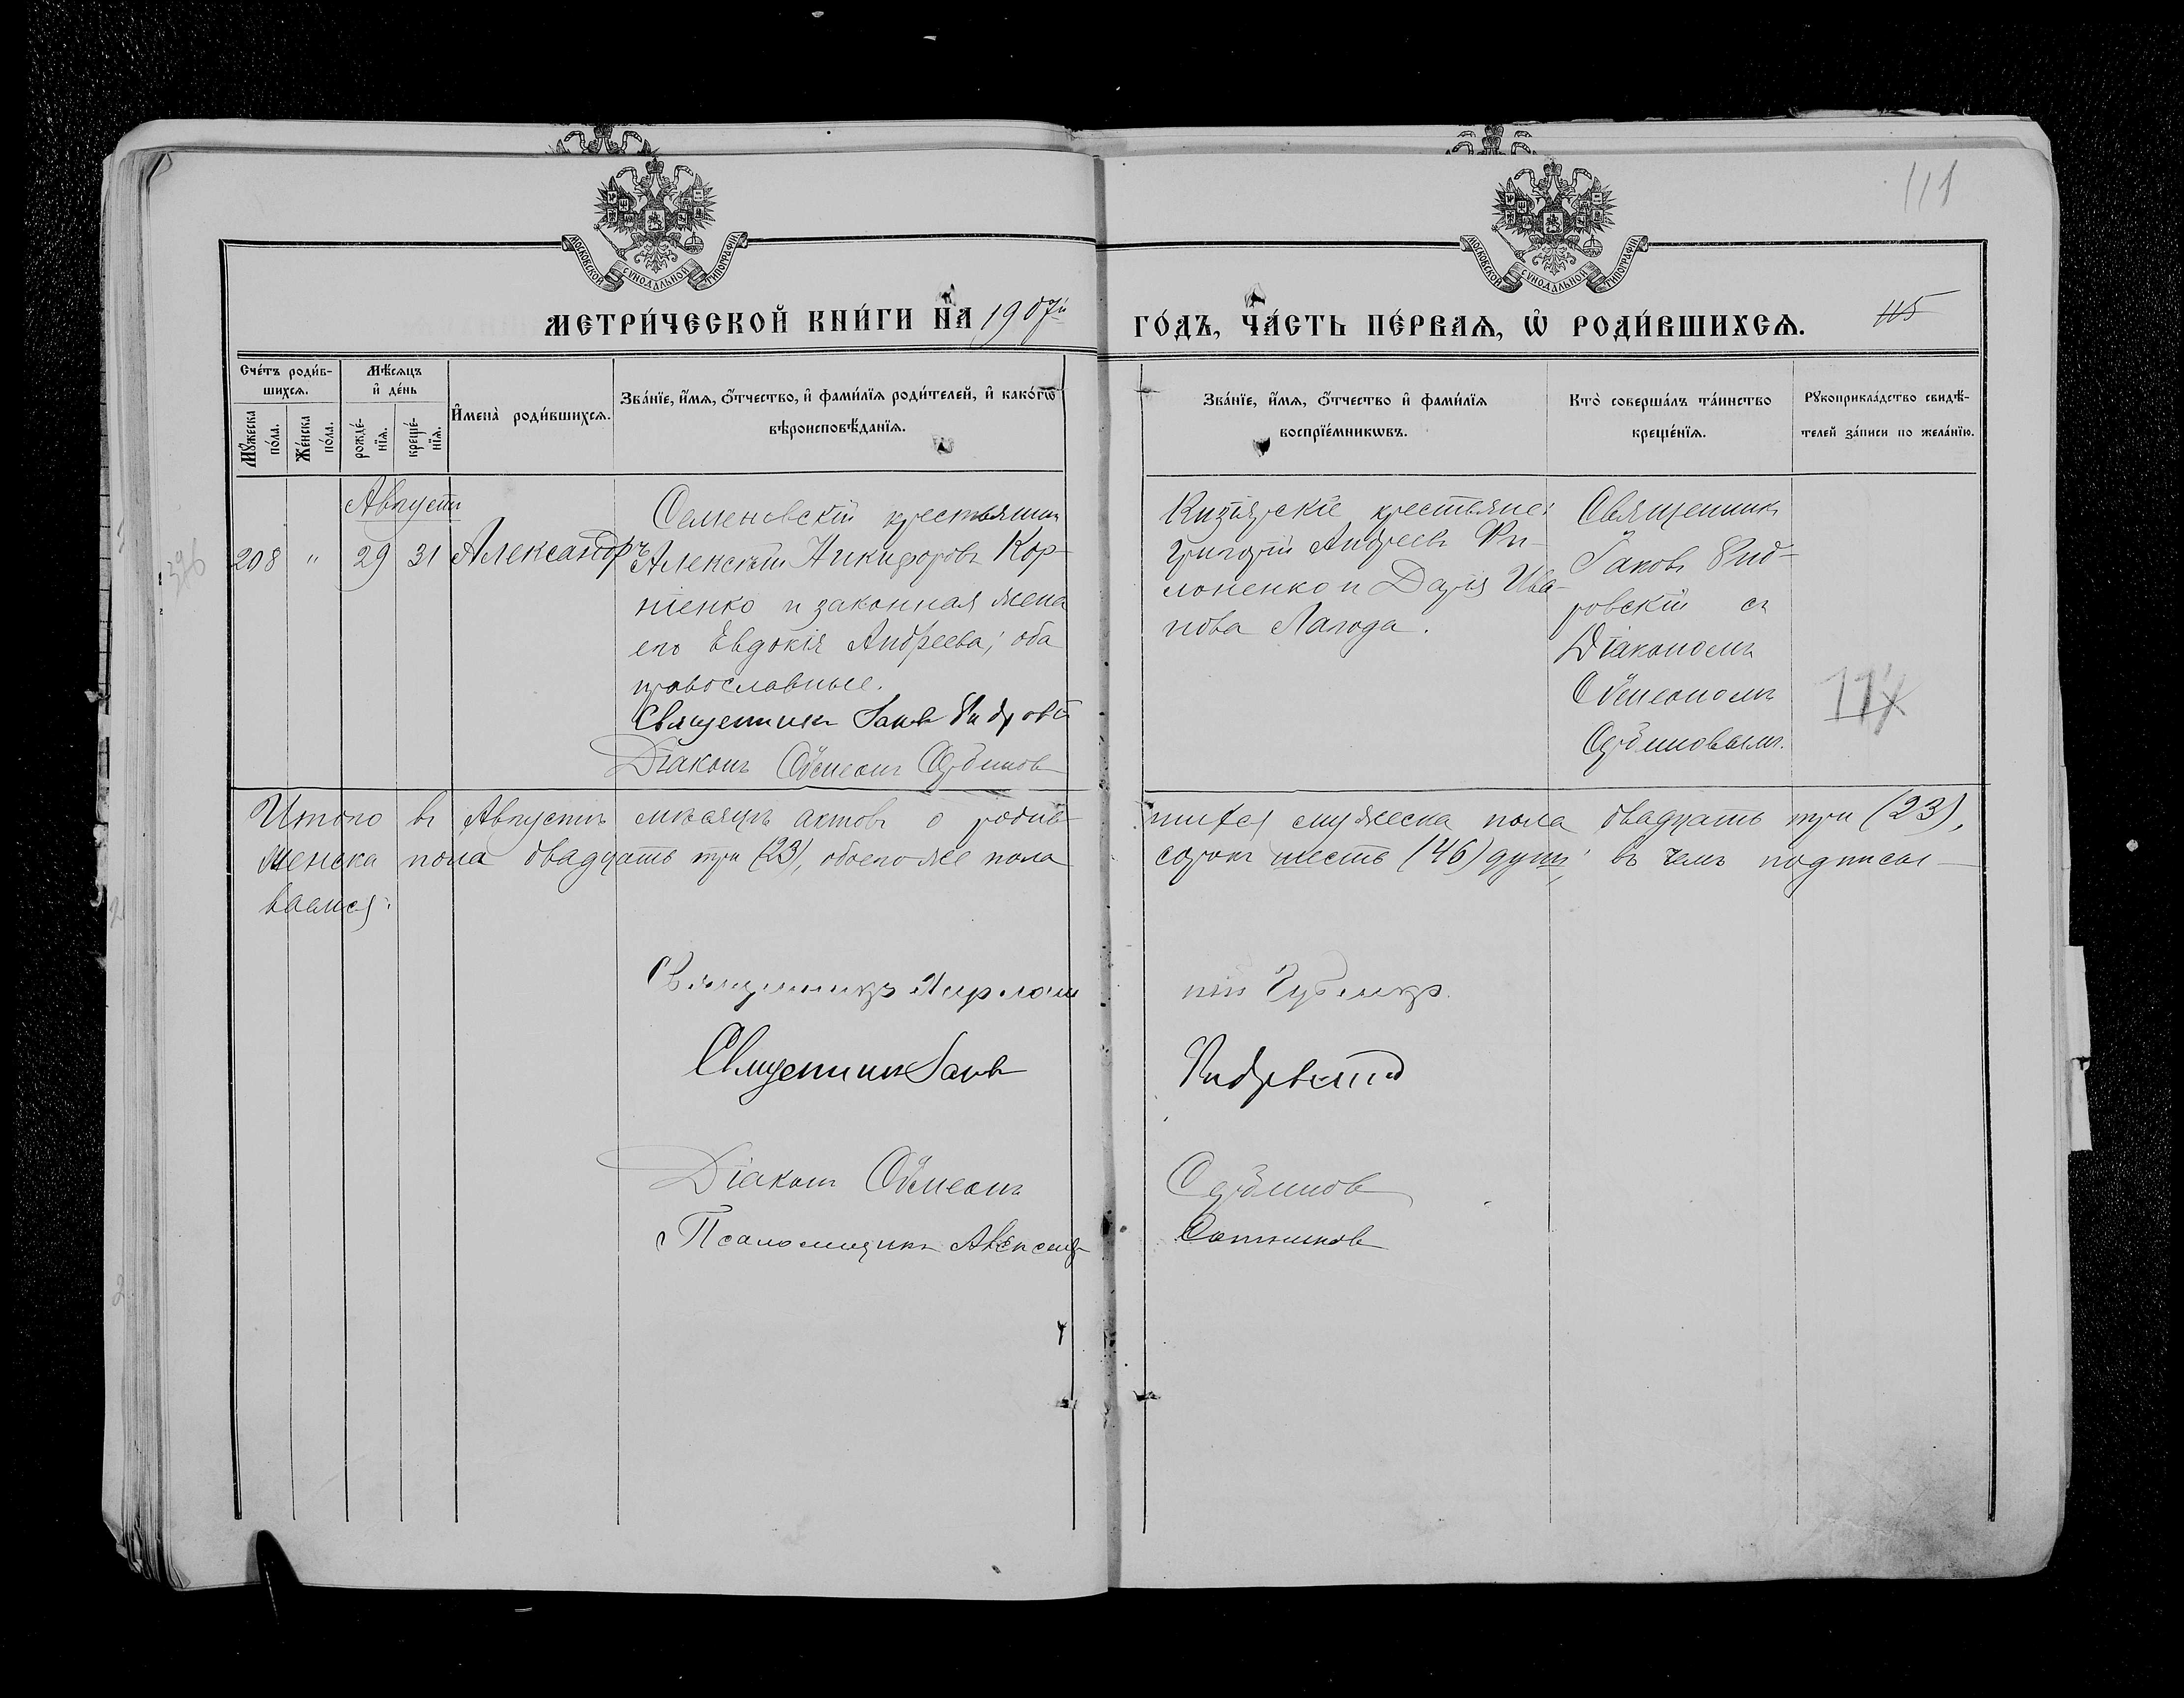 111
МОСКОВСКОЙ СѴНОДАЛЬНОЙ ТИПОГРАФІИ
МОСКОВСКОЙ СѴНОДАЛЬНОЙ ТИПОГРАФІИ
МЕТРИ́ЧЕСКОЙ КНИ́ГИ НА 1907й ГО́ДЪ, ЧА́СТЬ ПЕ́РВАѦ, Ѡ РОДИ́ВШИХСѦ.
115
Сче́тъ роди́в-
шихсѧ.
Мꙋ́жеска
по́ла.
Же́нска
по́ла.
Мѣ́сѧцъ
и҆ де́нь
рожде́-
нїѧ.
креще́-
нїѧ.
И҆мена̀ роди́вшихсѧ.
Зва́нїе, и҆́мѧ, ѻ҆́тчество, и҆ фами́лїѧ роди́телей, и҆ како́гѡ
вѣроисповѣ́данїѧ.
Зва́нїе, и҆́мѧ, ѻ҆́тчество и҆ фами́лїѧ
воспрїе́мникѡвъ.
Кто̀ соверша́лъ та́инство
креще́нїѧ.
Рꙋкоприкла́дство свидѣ́-
телей за́писи по жела́нїю.
Августъ
208 " 29 31 Александръ
Семеновскій крестьянинъ
Алексѣй Никифоровъ Кор-
ніенко и законная жена
его Евдокія Андреева; оба
православные.
Священникъ Іаковъ
Діаконъ Сѵмеонъ
Кизіярскіе крестьяне:
Григорій Андреевъ Фи-
лоненко и Дарія Ива-
нова Лагода.
Священникъ
Іаковъ
ровскій съ
Діакономъ
Сѵмеономъ
Итого въ Августѣ мѣсяцѣ актовъ о родив-
шихся мужеска пола двадцать три (23),
женска пола двадцать три (23), обоего же пола
сорокъ шесть (46) душъ; въ чемъ подписы-
ваемся:
Священникъ
Священникъ Іаковъ
Діаконъ Сѵмеонъ
Псаломщикъ Сотников